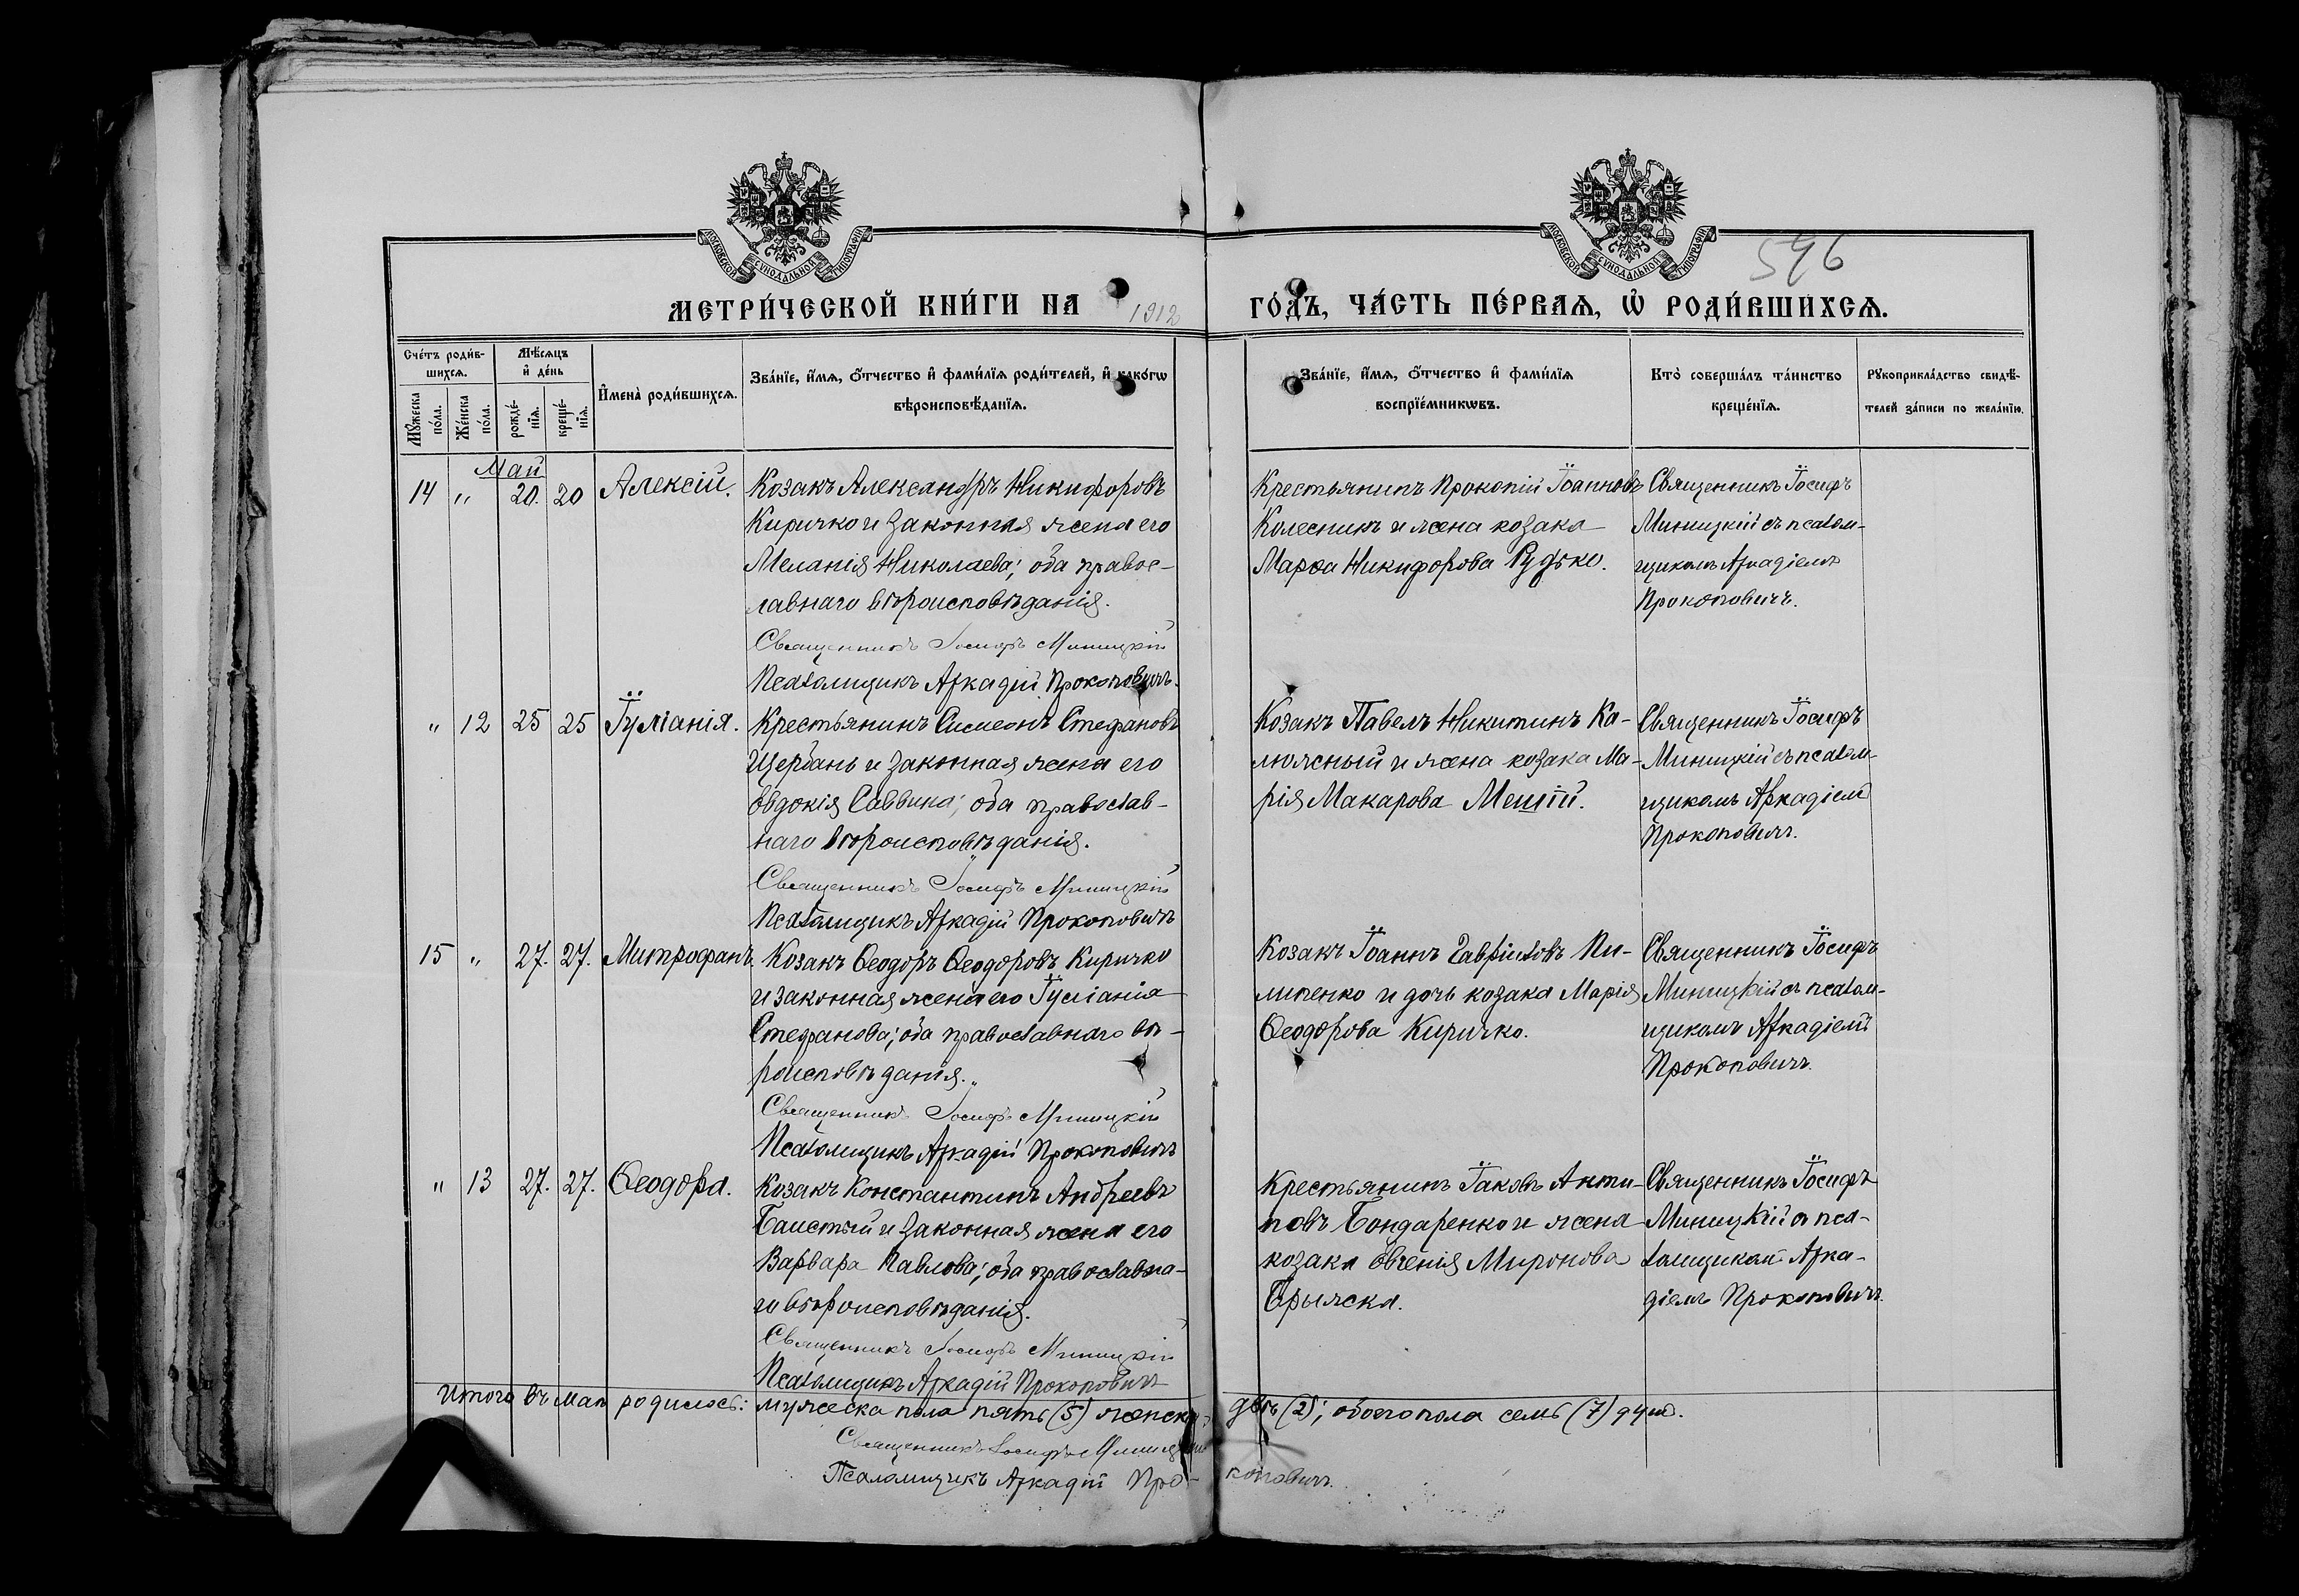 МОСКОВСКОЙ СѴНОДАЛЬНОЙ ТИПОГРАФІИ
МОСКОВСКОЙ СѴНОДАЛЬНОЙ ТИПОГРАФІИ
546
МЕТРИ́ЧЕСКОЙ КНИ́ГИ НА 1912 ГО́ДЪ, ЧА́СТЬ ПЕ́РВАѦ, Ѡ҆ РОДИ́ВШИХСѦ.
Сче́тъ роди́в-
шихсѧ.
Мꙋ́жеска по́ла.
Же́нска по́ла.
Мѣ́сѧцъ
и҆ де́нь
рожде́-
нїѧ.
креще́-
нїѧ.
И҆мена̀ роди́вшихсѧ.
Зва́нїе, и҆́мѧ, ѻ҆́тчество и҆ фами́лїѧ роди́телей, и҆ како́гѡ
вѣроисповѣ́данїѧ.
Зва́нїе, и҆́мѧ, ѻ҆́тчество и҆ фами́лїѧ
воспрїе́мникѡвъ.
Кто̀ соверша́лъ та́инство
креще́нїѧ.
Рꙋкоприкла́дство свидѣ́-
телей за́писи по жела́нїю.
Май
14 " 20. 20 Алексій.
Козакъ Александръ Никифоровъ
Киричко и законная жена его
Меланія Николаева; оба правос-
лавнаго вѣроисповѣданія.
Священникъ Іосифъ Миницкій
Псаломщикъ Аркадій Прокоповичъ.
Крестьянинъ Прокопій Іоанновъ
Колесникъ и жена козака
Марѳа Никифорова Рудько.
Священникъ Іосифъ
Миницкій съ псалом-
щикомъ Аркадіемъ
Прокоповичъ.
" 12 25 25 Іуліанія.
Крестьянинъ Симеонъ Стефановъ
Щербань и законная жена его
Евдокія Саввина; оба православ-
наго вѣроисповѣданія.
Священникъ Іосифъ Миницкій
Псаломщикъ Аркадій Прокоповичъ
Козакъ Павелъ Никитинъ Ка-
люжный и жена козака Ма-
рія Макарова
Священникъ Іосифъ
Миницкій съ псалом-
щикомъ Аркадіем
Прокоповичъ.
15 " 27. 27. Митрофанъ.
Козакъ Ѳеодоръ Ѳеодоровъ Киричко
и законная жена его Іуліанія
Стефанова; оба православнаго вѣ-
роисповѣданія.
Священникъ Іосифъ Миницкій
Псаломщикъ Аркадій Прокоповичъ
Козакъ Іоаннъ Гавріиловъ Пи-
липенко и дочь козака Марія
Ѳеодорова Киричко.
Священникъ Іосифъ
Миницкій съ псалом-
щикомъ Аркадіемъ
Прокоповичъ.
" 13 27. 27. Ѳеодора.
Козакъ Константинъ Андреевъ
и законная жена его
Варвара Павлова; оба православна-
го вѣроисповѣданія.
Священникъ Іосифъ Миницкій
Псаломщикъ Аркадій Прокоповичъ
Крестьянинъ Іаковъ Анти-
повъ Бондаренко и жена
козака Евгенія Миронова
Священникъ Іосифъ
Миницкій съ пса-
ломщикомъ Арка-
діемъ Прокоповичъ.
Итого въ маѣ родилось: мужеска пола пять (5) женска двѣ (2); обоего пола семь (7) душ.
Священникъ Іосифъ Миницкій
Псаломщикъ Аркадій Про-коповичъ.